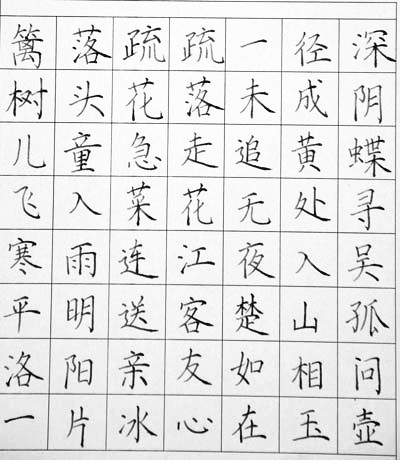 篱落疏疏一径深
树头花落未成阴
儿童急走追黄蝶
飞入菜花无处寻
寒雨连江夜入吴
平明送客楚山孤
洛阳亲友如相问
一片冰心在玉壶